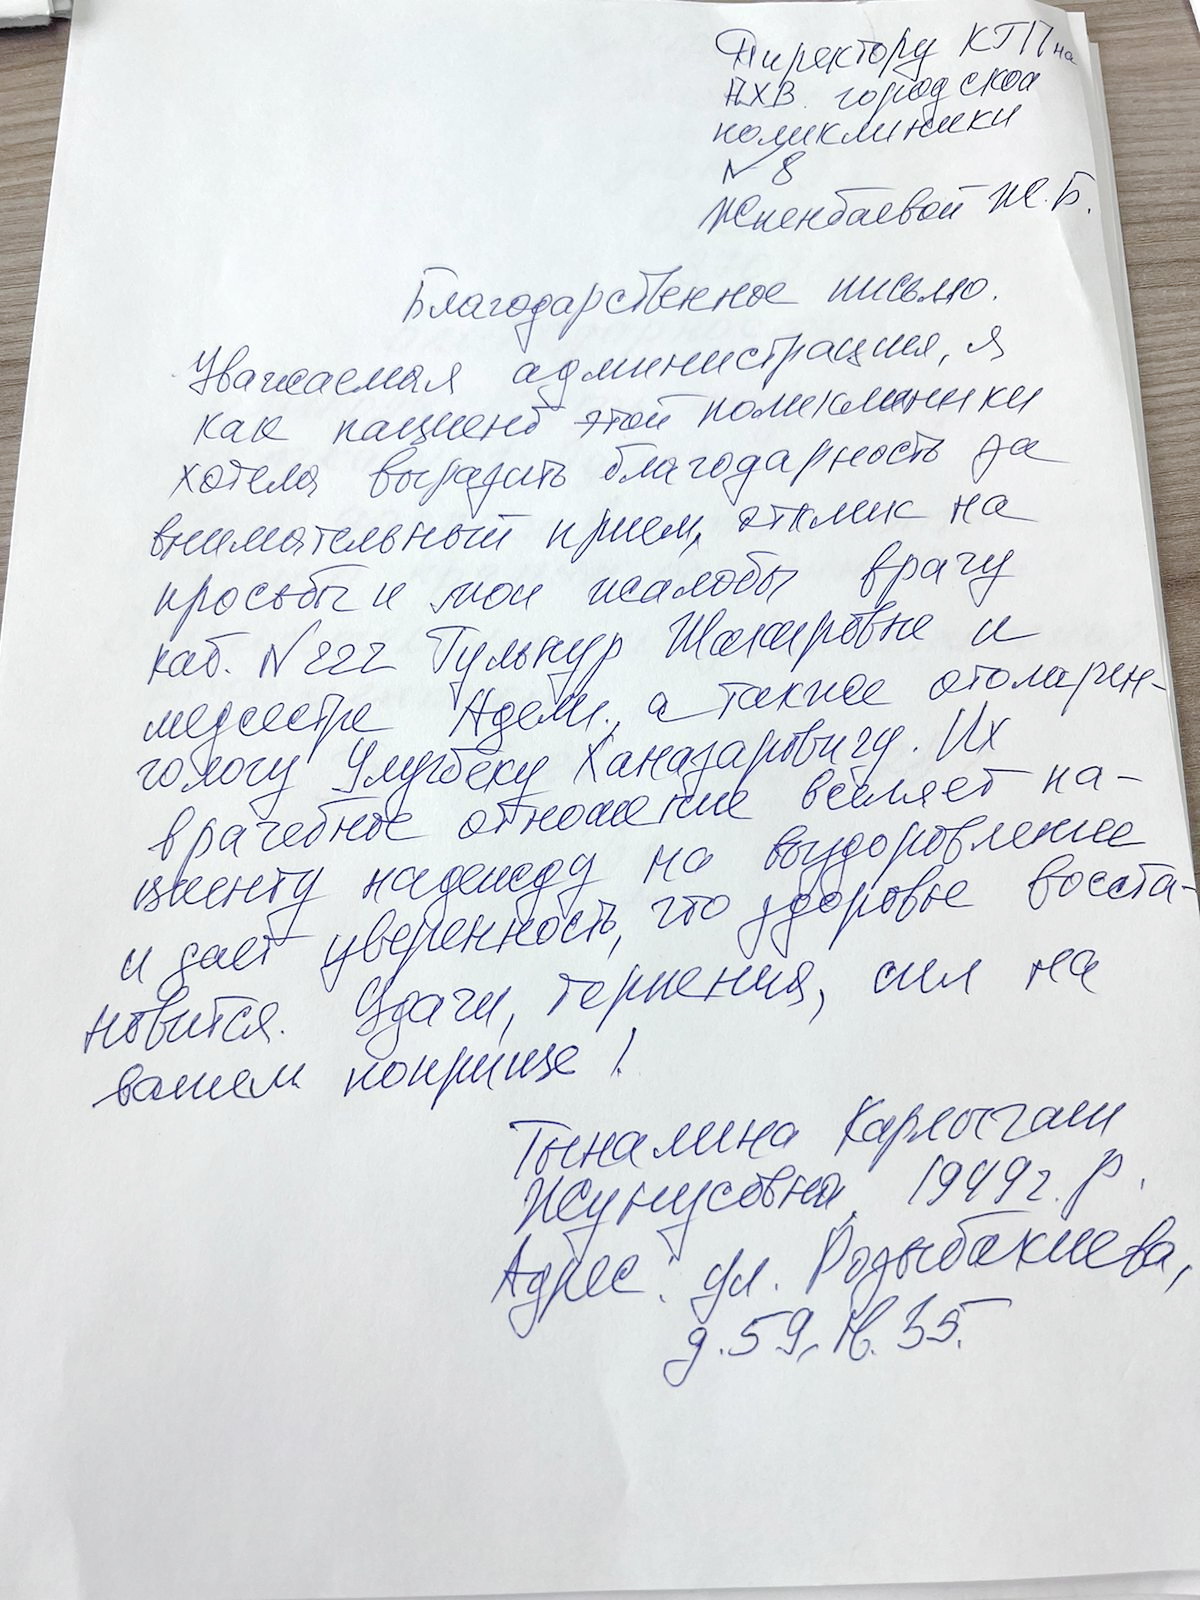 Директору КГП на
ПХВ городской
поликлиники
№ 8
Жиенбаевой Ж.Б.
Благодарственное письмо.
Уважаемая администрация, я
как пациент этой поликлиники
хотела выразить благодарность за
внимательный прием, отклик на
просьбы и мои жалобы врачу
каб. №222 Гульнур Шакировне и
медсестре Адели, а также отоларен-
гологу Улугбеку Ханазаровичу. Их
врачебное отношение вселяет па-
циенту надежду на выздоровление
и дает уверенность, что здоровье восста-
новится. Удачи, терпения, сил на
вашем поприще!
Тыналина Карлыгаш
Жунусовна, 1949 г. р.
Адрес: ул. Розыбакиева,
д. 59, кв. 35.